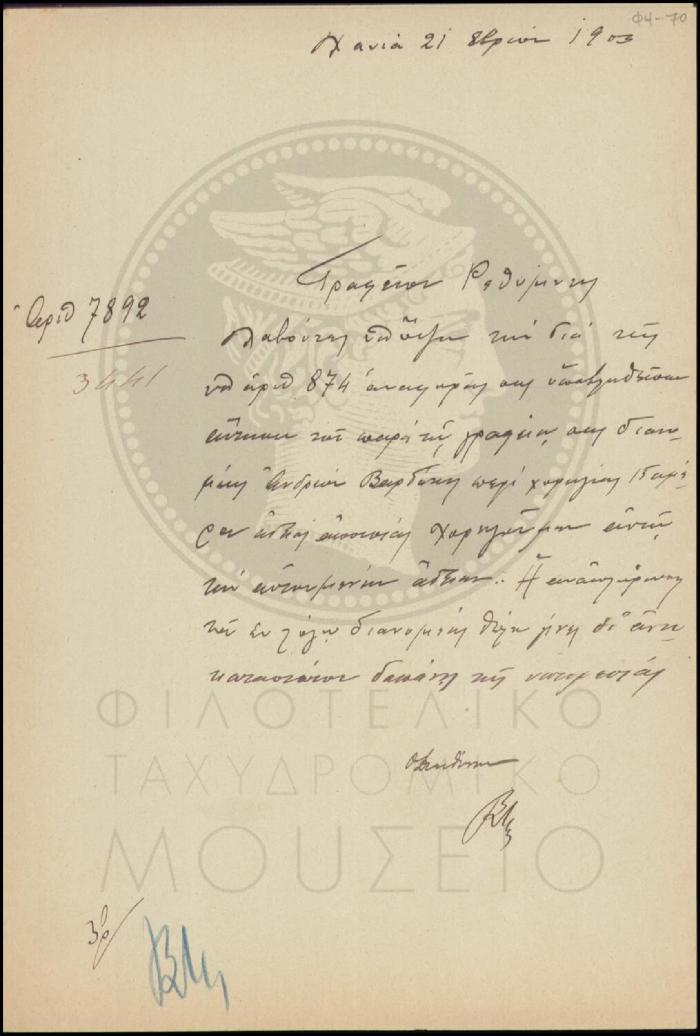 Φ4-70
Χανιά 21 8βρίου 1903
Γραφείον Ρεθύμνης
Αριθ 7892
3441
Λαβόντες υπ' όψιν την διά της
υπ' αριθ. 874 αναφοράς σας υποβληθείσαν
αίτησιν του παρά τω γραφείω σας διανο-
μέως Ανδρέου Βαρδάκη περί χορηγίας 15αμέ-
ρου αδείας απουσίας χορηγούμεν αυτώ
την αιτουμένην άδειαν. Η αναπλήρωσις
του εν λόγω διανομέως θέλει γίνει δι' αντι-
καταστάτου δαπάνη της υπηρεσίας
ΦΙΛΟΤΕΛΙΚΟ
ΤΑΧΥΔΡΟΜΙΚΟ
ΜΟΥΣΕΙΟ